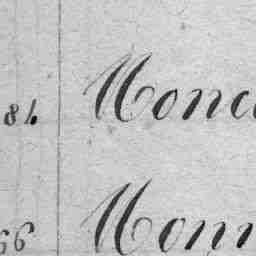 81. Monc
66 Mon